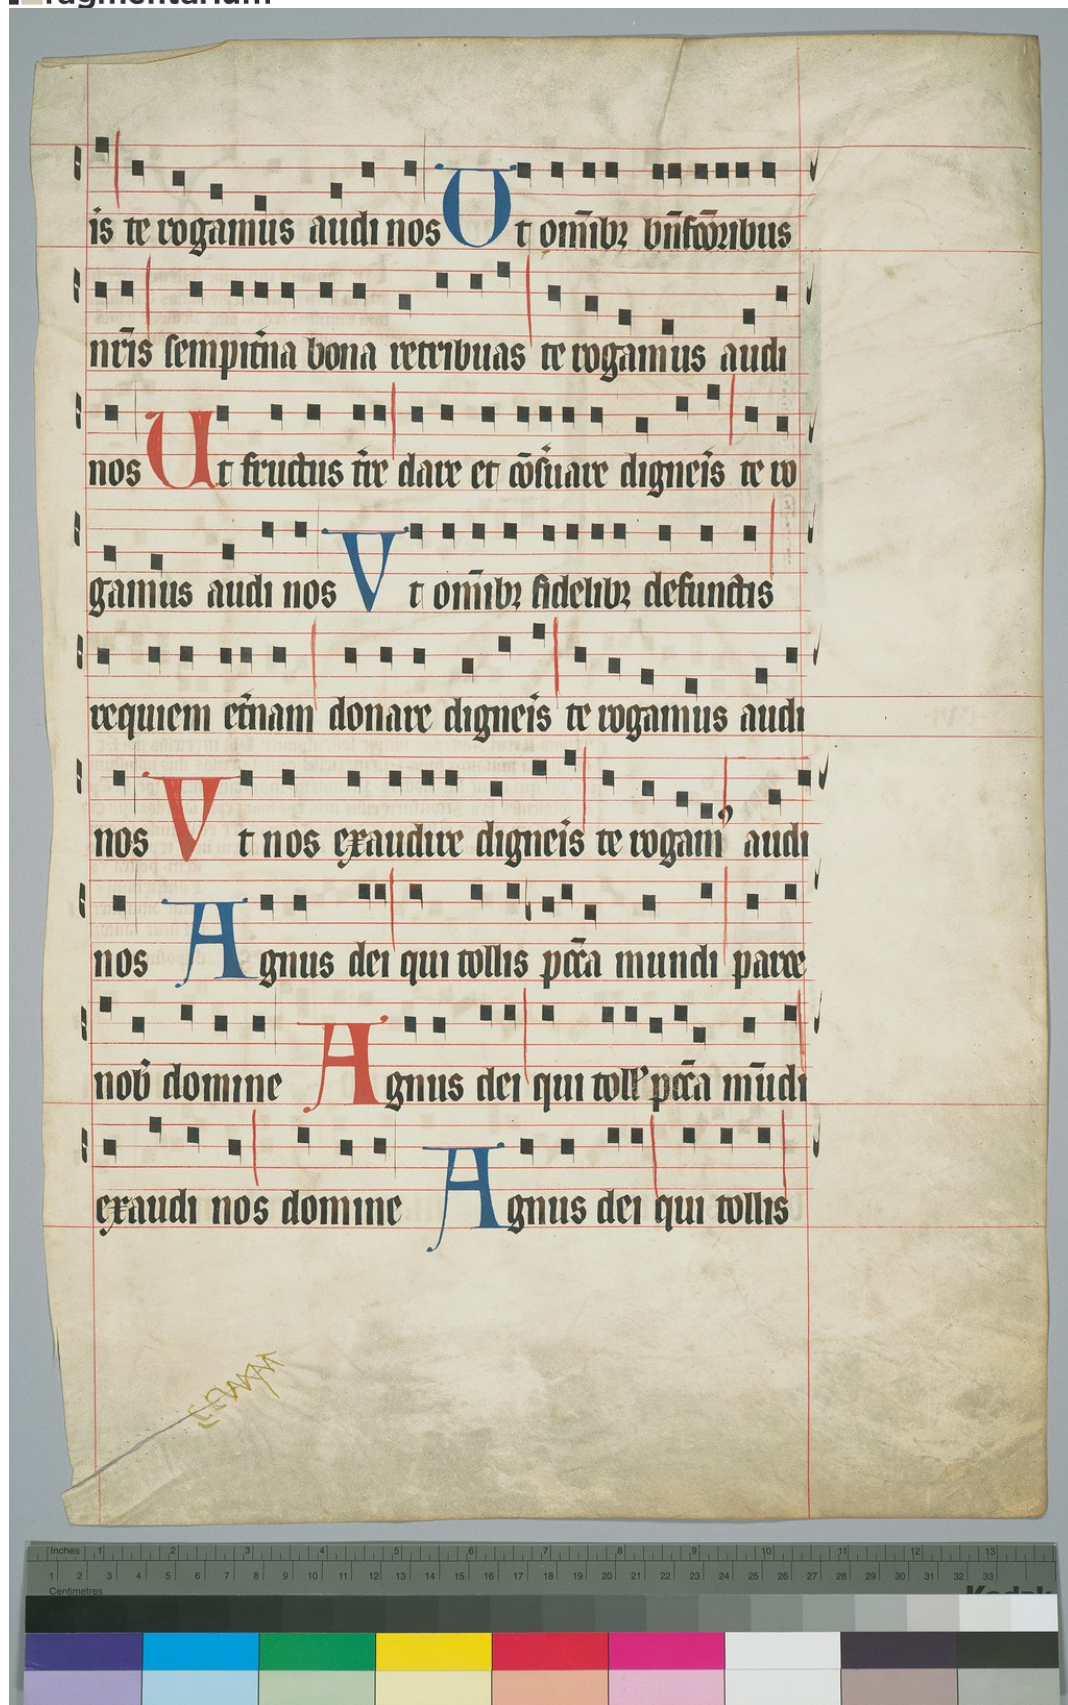 ragmentarium
is te rogamus audi nos Ut om̄ibꝫ bn̄fc̄oribus
nr̄is sempit̄na bona retribuas te rogamus audi
nos Ut fructus t̄re dare et cōſuare digneīs te ro
gamus audi nos Vt om̄ibꝫ fidelibꝫ defunctis
requiem et̄nam donare digneīs te rogamus audi
nos Vt nos exaudire digneīs te rogamꝰ audi
nos Agnus dei qui tollis pcc̄a mundi parce
nob̄ domine Agnus dei qui toll' pcc̄a mūdi
exaudi nos domine Agnus dei qui tollis
Inches 1 2 3 4 5 6 7 8 9 10 11 12 13
1 2 3 4 5 6 7 8 9 10 11 12 13 14 15 16 17 18 19 20 21 22 23 24 25 26 27 28 29 30 31 32 33
Centimetres Kodak